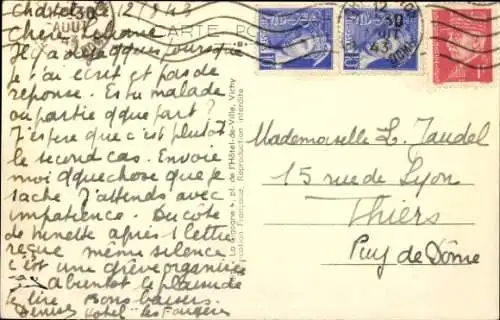 Châtel 12/8/43
Chère Liliane
Il y a déjà qques jours que
je t'ai écrit et pas de
réponse. Es tu malade
ou partie qque part?
J'espère que c'est plutôt
le second cas. Envoie
moi qquechose que je
sache. J'attends avec
impatience. Du côté
de Ninette après 1 lettre
reçue même silence
c'est une grève organisée
A bientôt le plaisir de
te lire Bons baisers.
Denise Hotel les Fougères
CARTE PO
12
30
AOUT
43
Mademoiselle L. Jaudel
15 rue de Lyon
Thiers
Puy de Dôme
La Cigogne 4, pl. de l'Hôtel-de-Ville, Vichy
Fabrication Française. Reproduction interdite